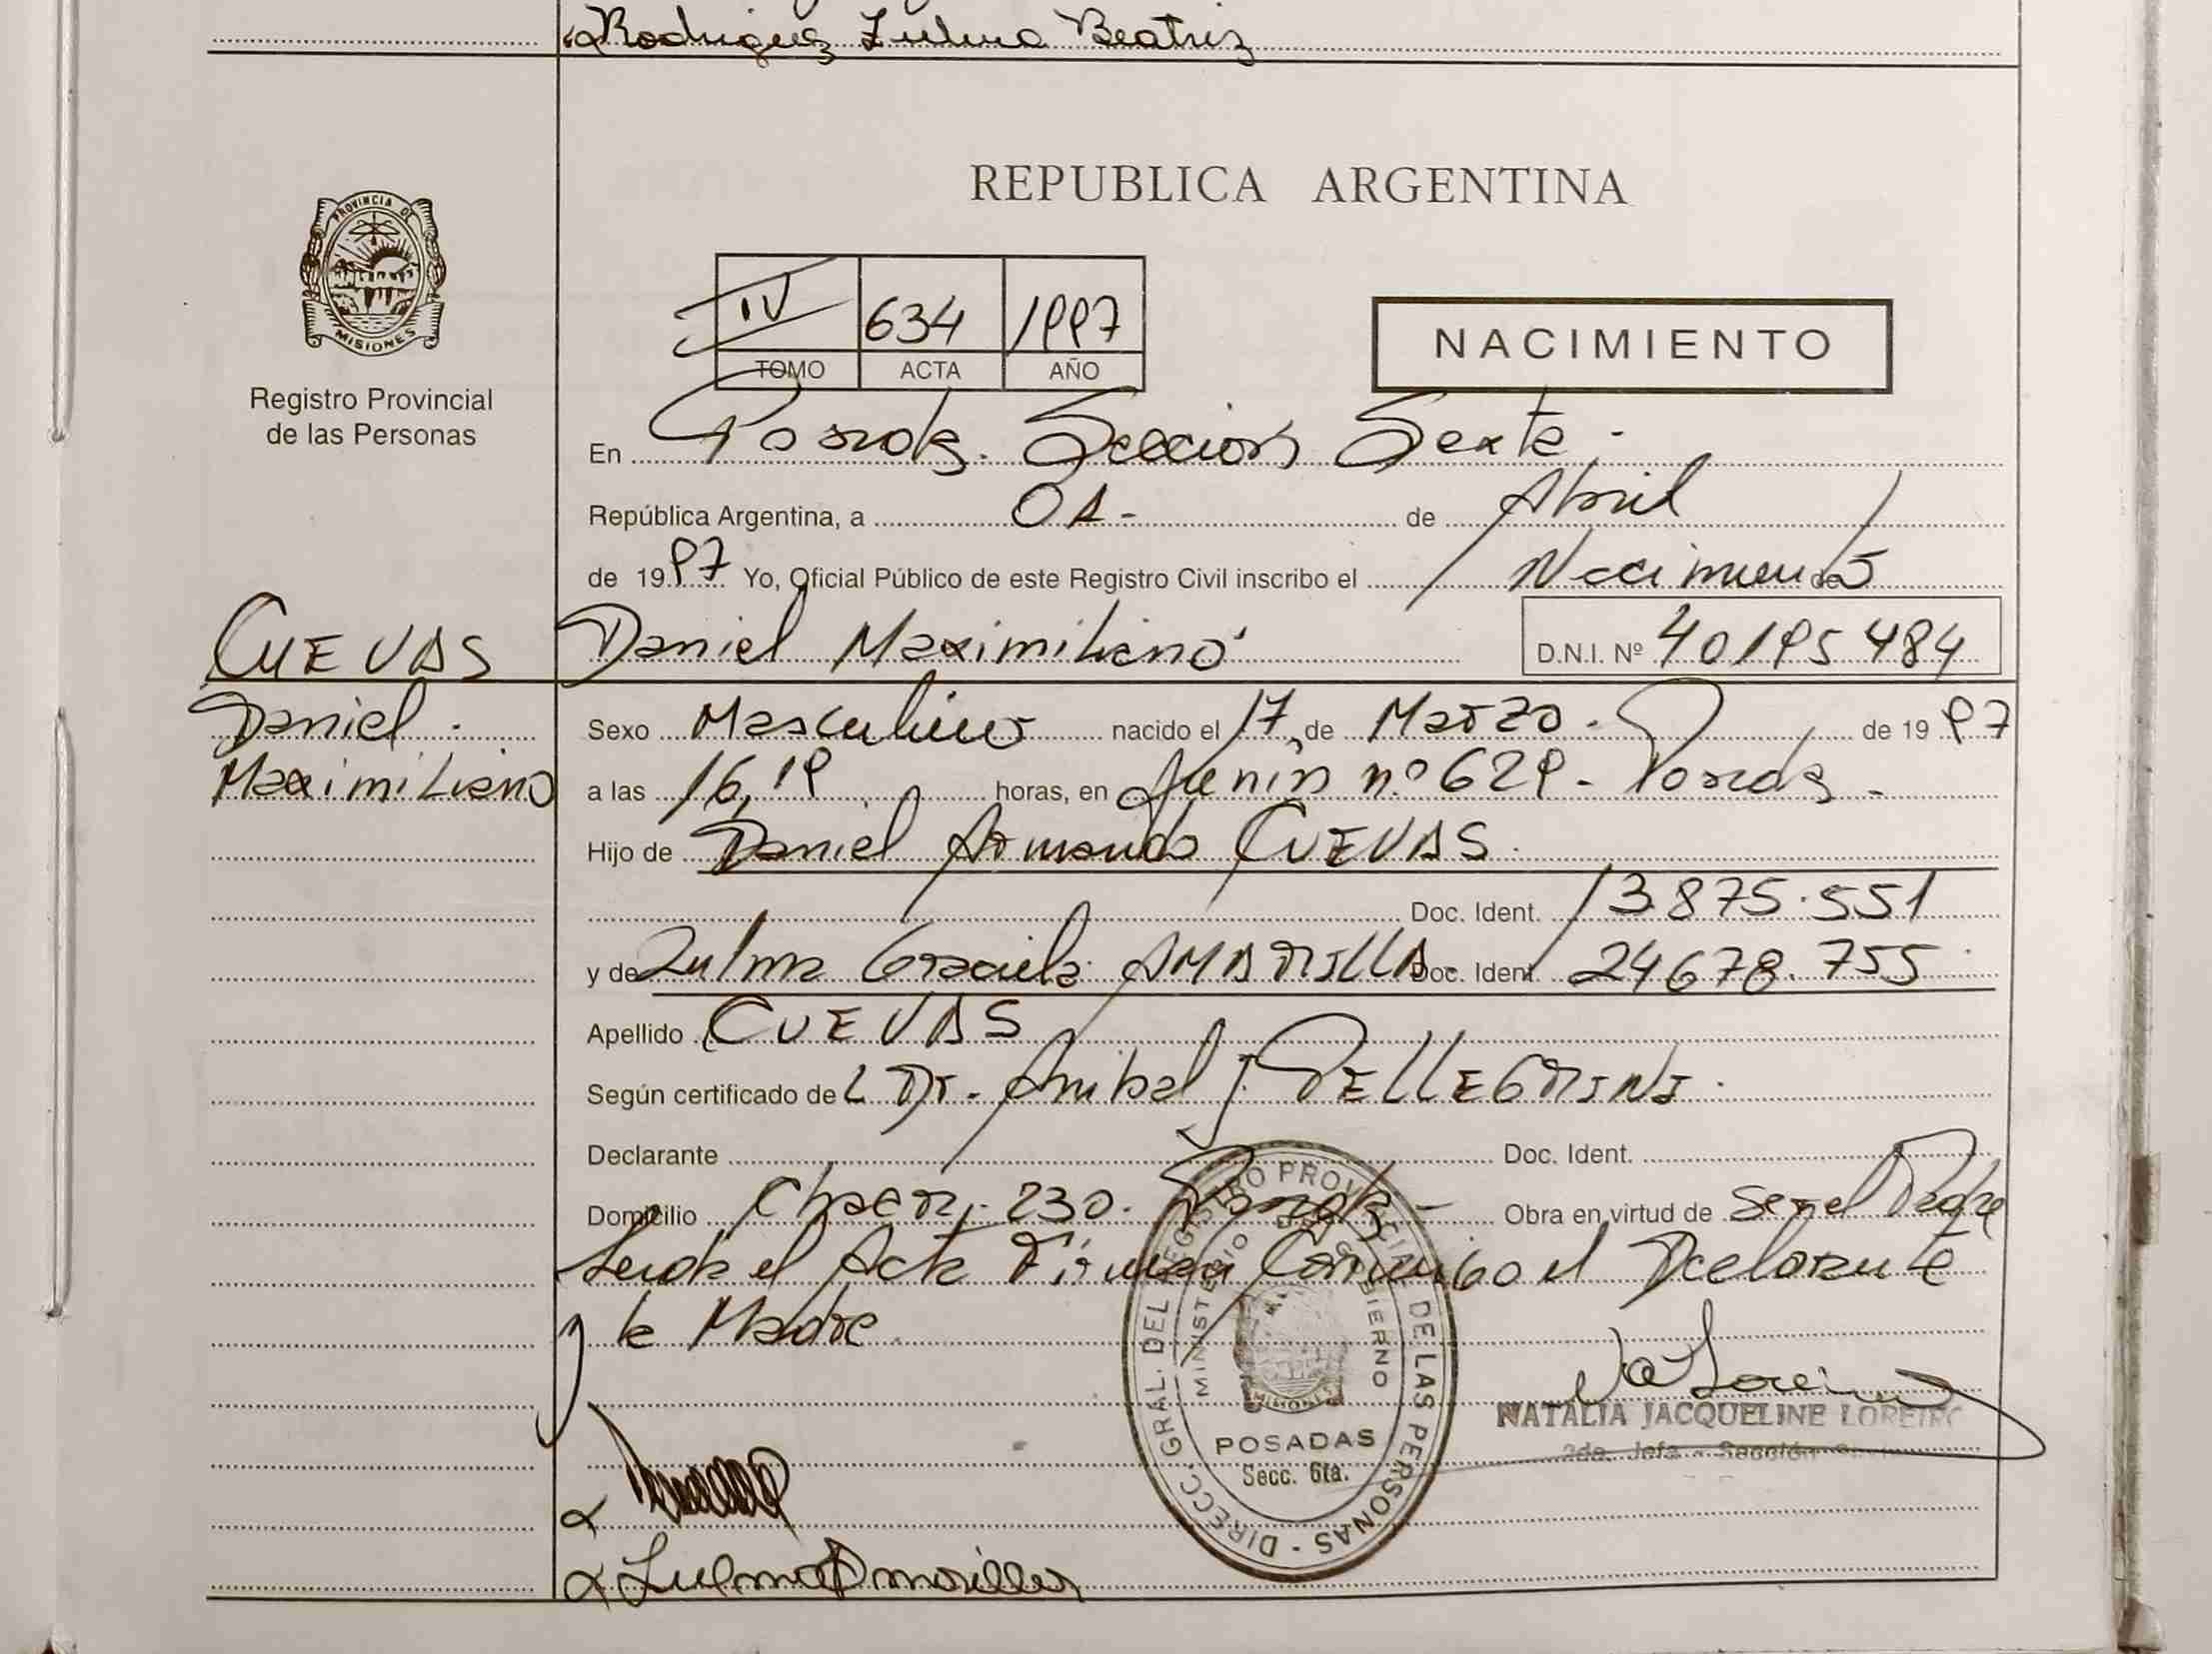 Rodriguez Zulma Beatriz
PROVINCIA DE
MISIONES
Registro Provincial
de las Personas
REPUBLICA ARGENTINA
IV 634 1997
TOMO ACTA AÑO
NACIMIENTO
En Posadas. Sección Sexta.
República Argentina, a 01- de Abril
de 1997 Yo, Oficial Público de este Registro Civil inscribo el Nacimiento de
CUEVAS Daniel Maximiliano D.N.I. Nº 40195484
Daniel. Sexo Masculino nacido el 17 de Marzo. de 1997
Maximiliano a las 16,19 horas, en Junín nº 629- Posadas-
Hijo de Daniel Armando CUEVAS
Doc. Ident. 13.875.551
y de Zulma Graciela AMARILLA Doc. Ident. 24678.755
Apellido CUEVAS
Según certificado del Dr. Anibal J. PELLEGRINI.
Declarante Doc. Ident.
Domicilio 230. Posadas- Obra en virtud de Ser el Padre
Leida el Acta Firman Conmigo el Declarante
y la Madre.
DIRECC. GRAL. DEL REGISTRO PROVINCIAL DE LAS PERSONAS -
MINISTERIO DE GOBIERNO
MISIONES
POSADAS
Secc. 6ta.
NATALIA JACQUELINE LOREIRO
2da. Jefa - Sección
Zulma Amarilla